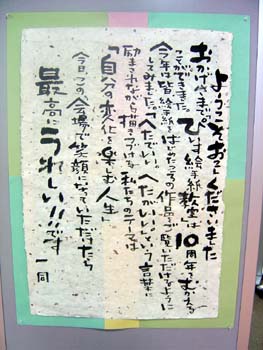 ようこそおこしくださいました
おかげさまで ぴいす絵手紙教室は10周年をむかえる
ことができました
今年は皆絵手紙をはじめた時の作品をご覧いただけるように
してみました。「へたでいい、へたがいい」という言葉に
励まされながら描きつづけ、私たちのテーマは
「自分の変化を楽しむ人生」
今日この会場で笑顔になっていただけたら
最高にうれしい!!です
一同